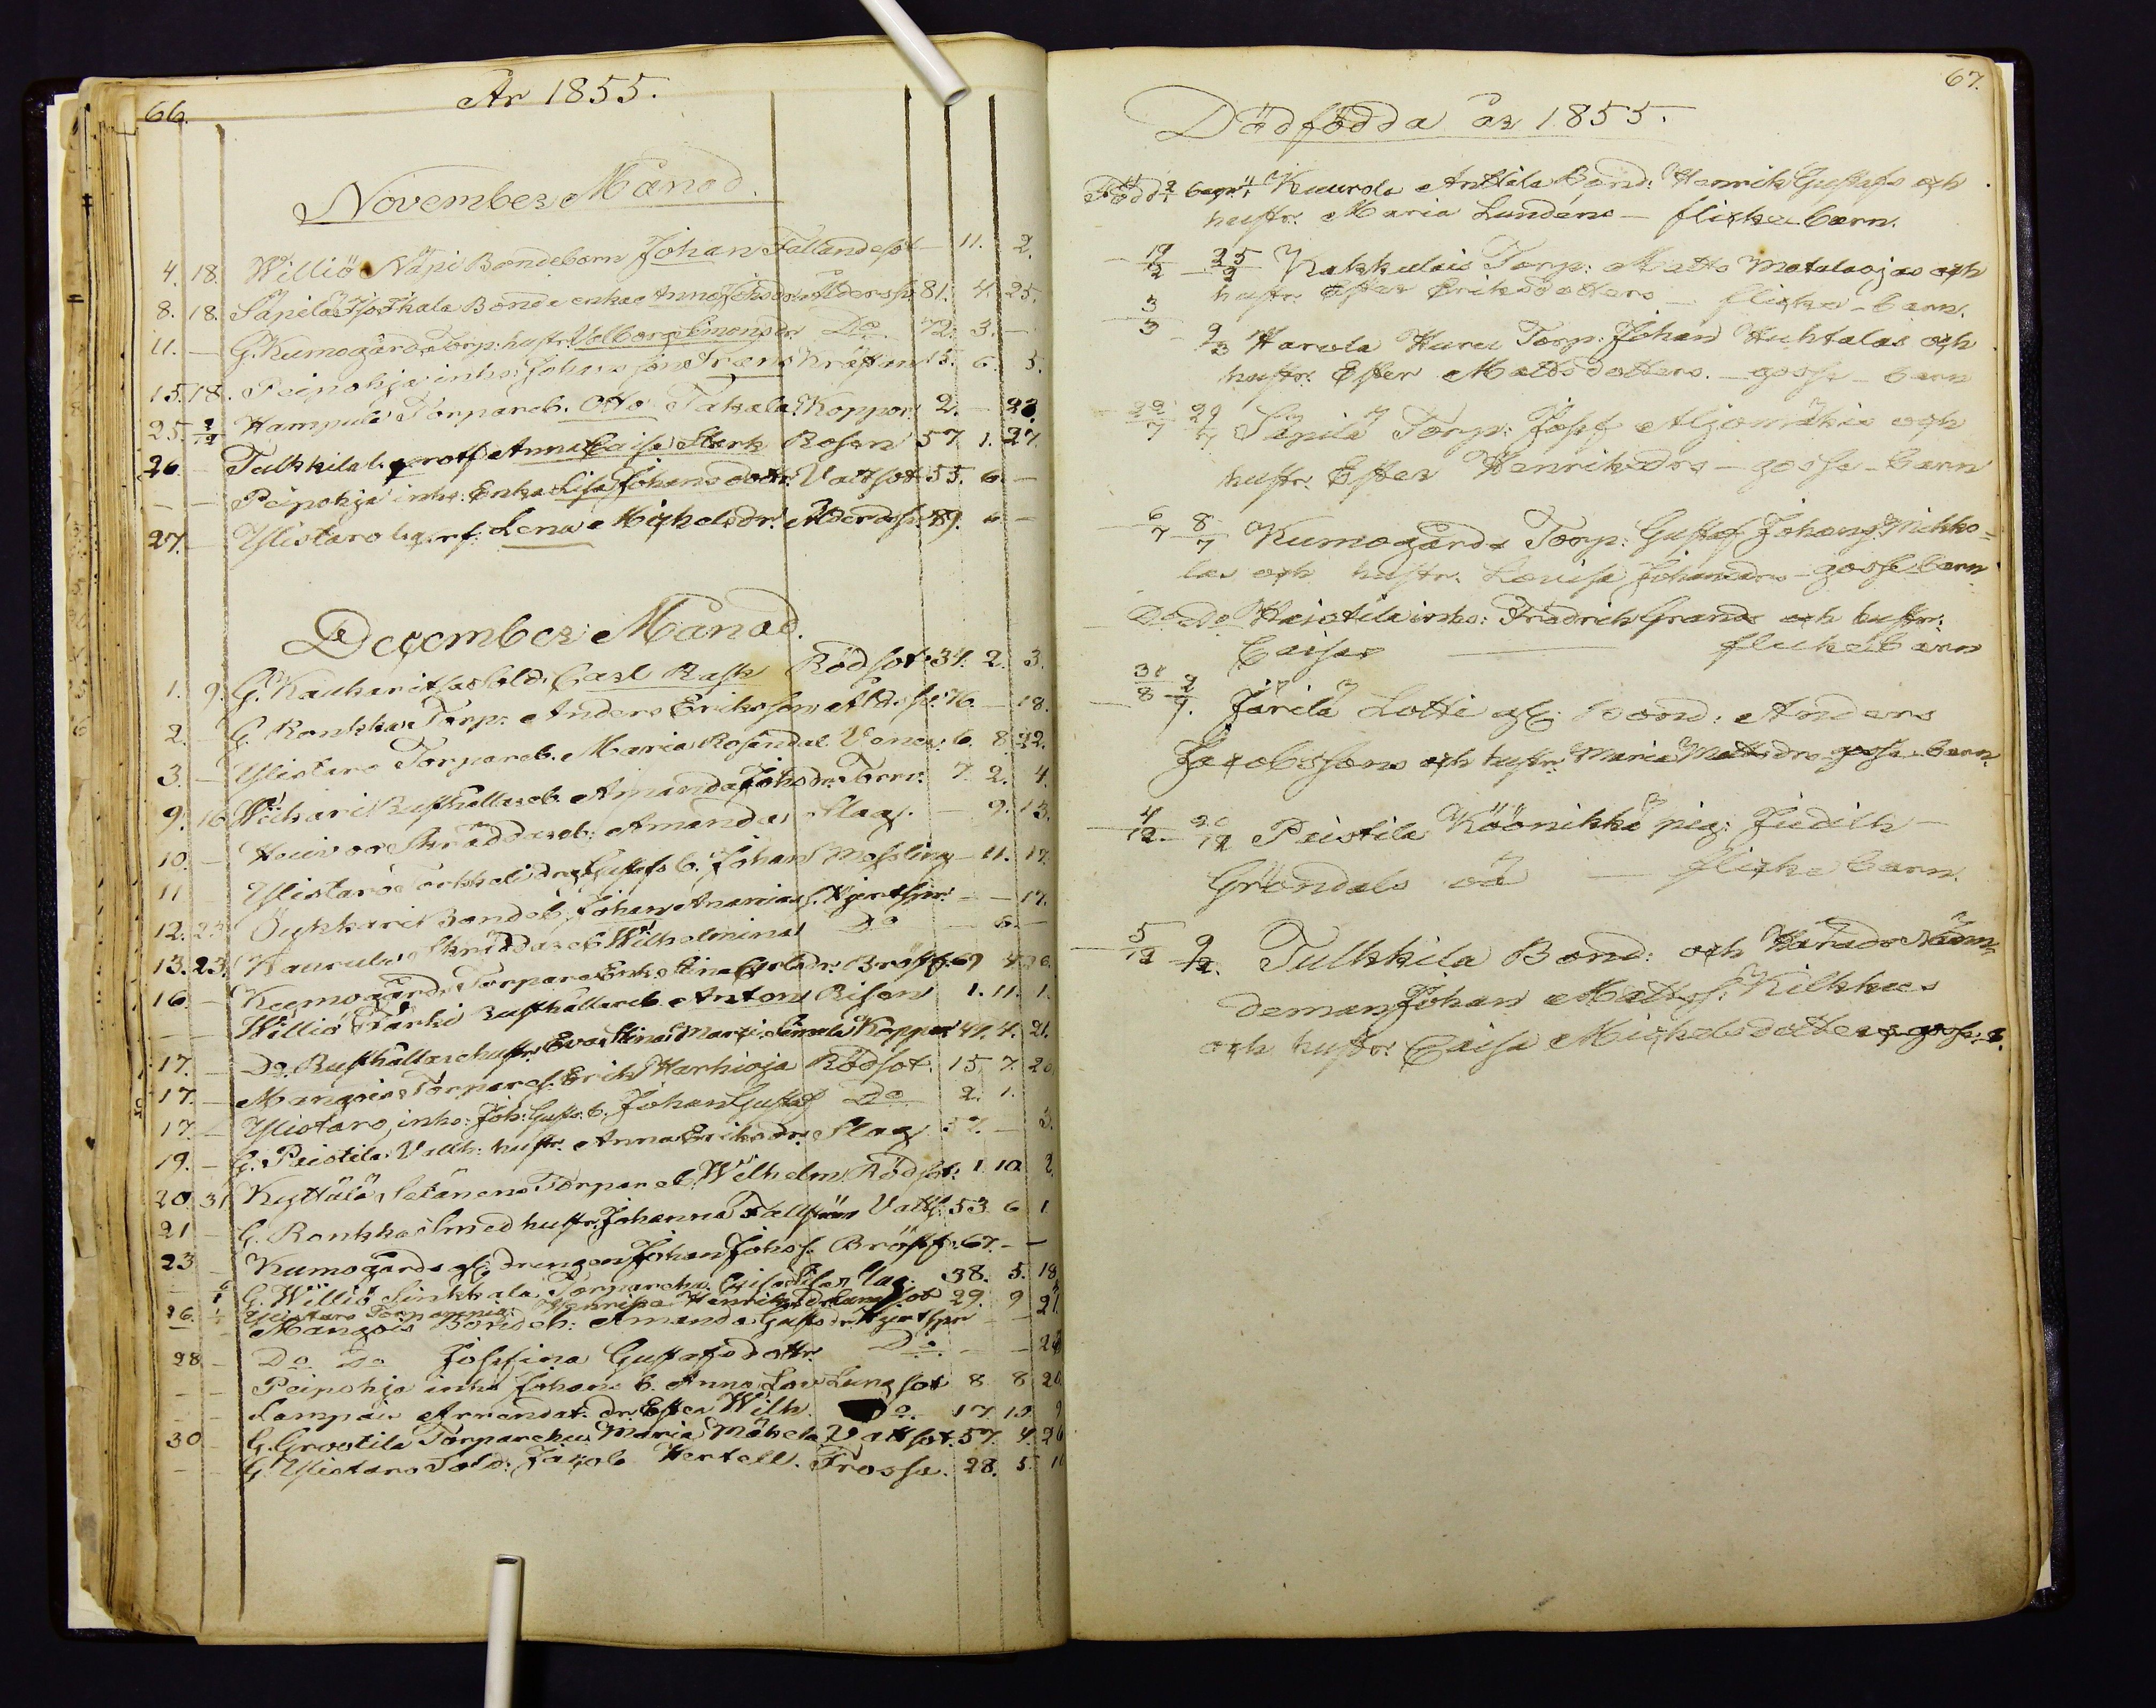 66.
År 1855.
November Månad.
4. 18. Williö Näpi Bondebarn Johan Fallandesot — 11. 2.
8. 18. Säpilä Iso Ihala Bonde enkae Anna Johsdr Åldersb. 81. 4. 25.
11. — G. Kumogårds Torp: hustr. Valborg Simonsdr Do 72. 3. —
15. 18. Peipohja inhs: Johans son Frans Kräftan 15. 6. 5.
25. 2/12 Hampula Torpareb. Otto Takala Koppor 2. — 28.
26. — Tulkkila Anna Caisa Stark Rosen 57 1. 27.
— — Peipohja inhs: Enka Lisa Johansdottr Vattsot 55. 6. —
27. — Ylistaro Lena Michelsdr. Ålderdsb. 89. 6 —
December Månad.
1. 9. G. Kaukaritsa Sold. Carl Rask Rödsot 34. 2. 3.
2. — G. Ronkka Torp: Anders Eriksson Åld.sb. 76. — 18.
3. — Ylistaro Torpareb. Maria Rosendal Vener. 6. 8. 22.
9. 16 Wuhari Rusthållareb. Amanda Johsdr. Torrv. 7. 2. 4.
10. — Skräddareb: Amanda Slag. — 9. 13.
11 — Ylistaro Torkkeli drg Gustafs b. Johan Messling — 11. 17.
12. 23 Sukkari Bondeb. Johan Ananias. Hjertspr. — — 17.
13. 23. Kaurula Skräddareb. Wilhelmina Do — 6. —
16. — Kumogårds Torpare Enka Stina Carlsdr. Bröstf. 69 4 26.
— — Williö Pärki Rusthållareb. Anton Risen 1. 11. 1.
17. — Do. Rusthållarehustr. Eva Stina Marjet. Simula Koppor 41. 4. 21.
17. — Mangois Torpares. Erik Harhioja Rödsot 15. 7. 20
17. — Ylistaro, inhs: Joh: Gustfs. b. Johan Gustaf Do 2. 1.
19. — G. Peistila Vallk: hustr. Anna Eriksdr. Slag 57. — 3.
20. 31 Kyttälä Setänens Torpareb. Wilhelm Rödsot: 1. 10. 2.
21 — G. Ronkka Smedhustr. Johanna Fallström Vatts. 53. 6 1
23 — Kumogårds gl. drengen Johan Johss. Bröstf. 67. — —
— 6/1 G. Williö Sinkkala Torparehu. Caisa Slag. 38. 5. 18
26. Ylistaro Torparepig. Henrika Henriksdr. Lungsot 29. 9 21.
— Mangois Bondeb: Amanda Gustsdr. Hjertspr — —
28 — Do Do Josefina Gustafsdottr. Do — — 24
— — Peipohja inhs Johans b. Anna Lov Lungsot 8. 8. 20
— — Lampais Arrendat. dr. Ester Wilh. Do. 17. 10 9
30 — G. Grootila Torparehu Maria Mäkelä Vattsot. 57. 4. 26
— — G. Ylistaro Sold: Jacob Hertell. Frossa. 28. 5. 10
67.
Dödfödda år 1855.
Född 2/1 begr. Kuurola Anttila Bond: Henrik Gustafs och
hustr. Maria Lundéns — flicke barn.
19/2 25/2 Kakkulais Torp: Matts Matalaojas och
hustr. Ester Eriksdotters — flicke-barn.
3/3 9/3 Harola Huru Torp: Johan Huhtalas och
hustr. Ester Mattsdotters. — gosse-barn
22/7 29/7 Säpilä Torp: Josef Aljomäkis och
hustr. Ester Henriksdrs — gosse-barn
6/7 8/7 Kumogårds Torp: Gustaf Johans Mikko=
las och hustr. Lovisa Johansdrs — gosse-barn
Do Do Haistila inhs: Friedrich Grans och hustr:
Caisas — flickebarn
31/8 2/9. Järilä Lotti gl. Bond: Anders
Jacobssons och hustr. Maria Mattsdrs gosse-barn.
4/12 20/12 Peistila Köönikkä pig: Judith
Gröndals oä — flicke barn.
5/12 9/12. Tulkkila Bond: och Härads Nämn=
deman Johan Mattss. Kilkkus
och hustr. Caisa Michelsdotters gosse. b.